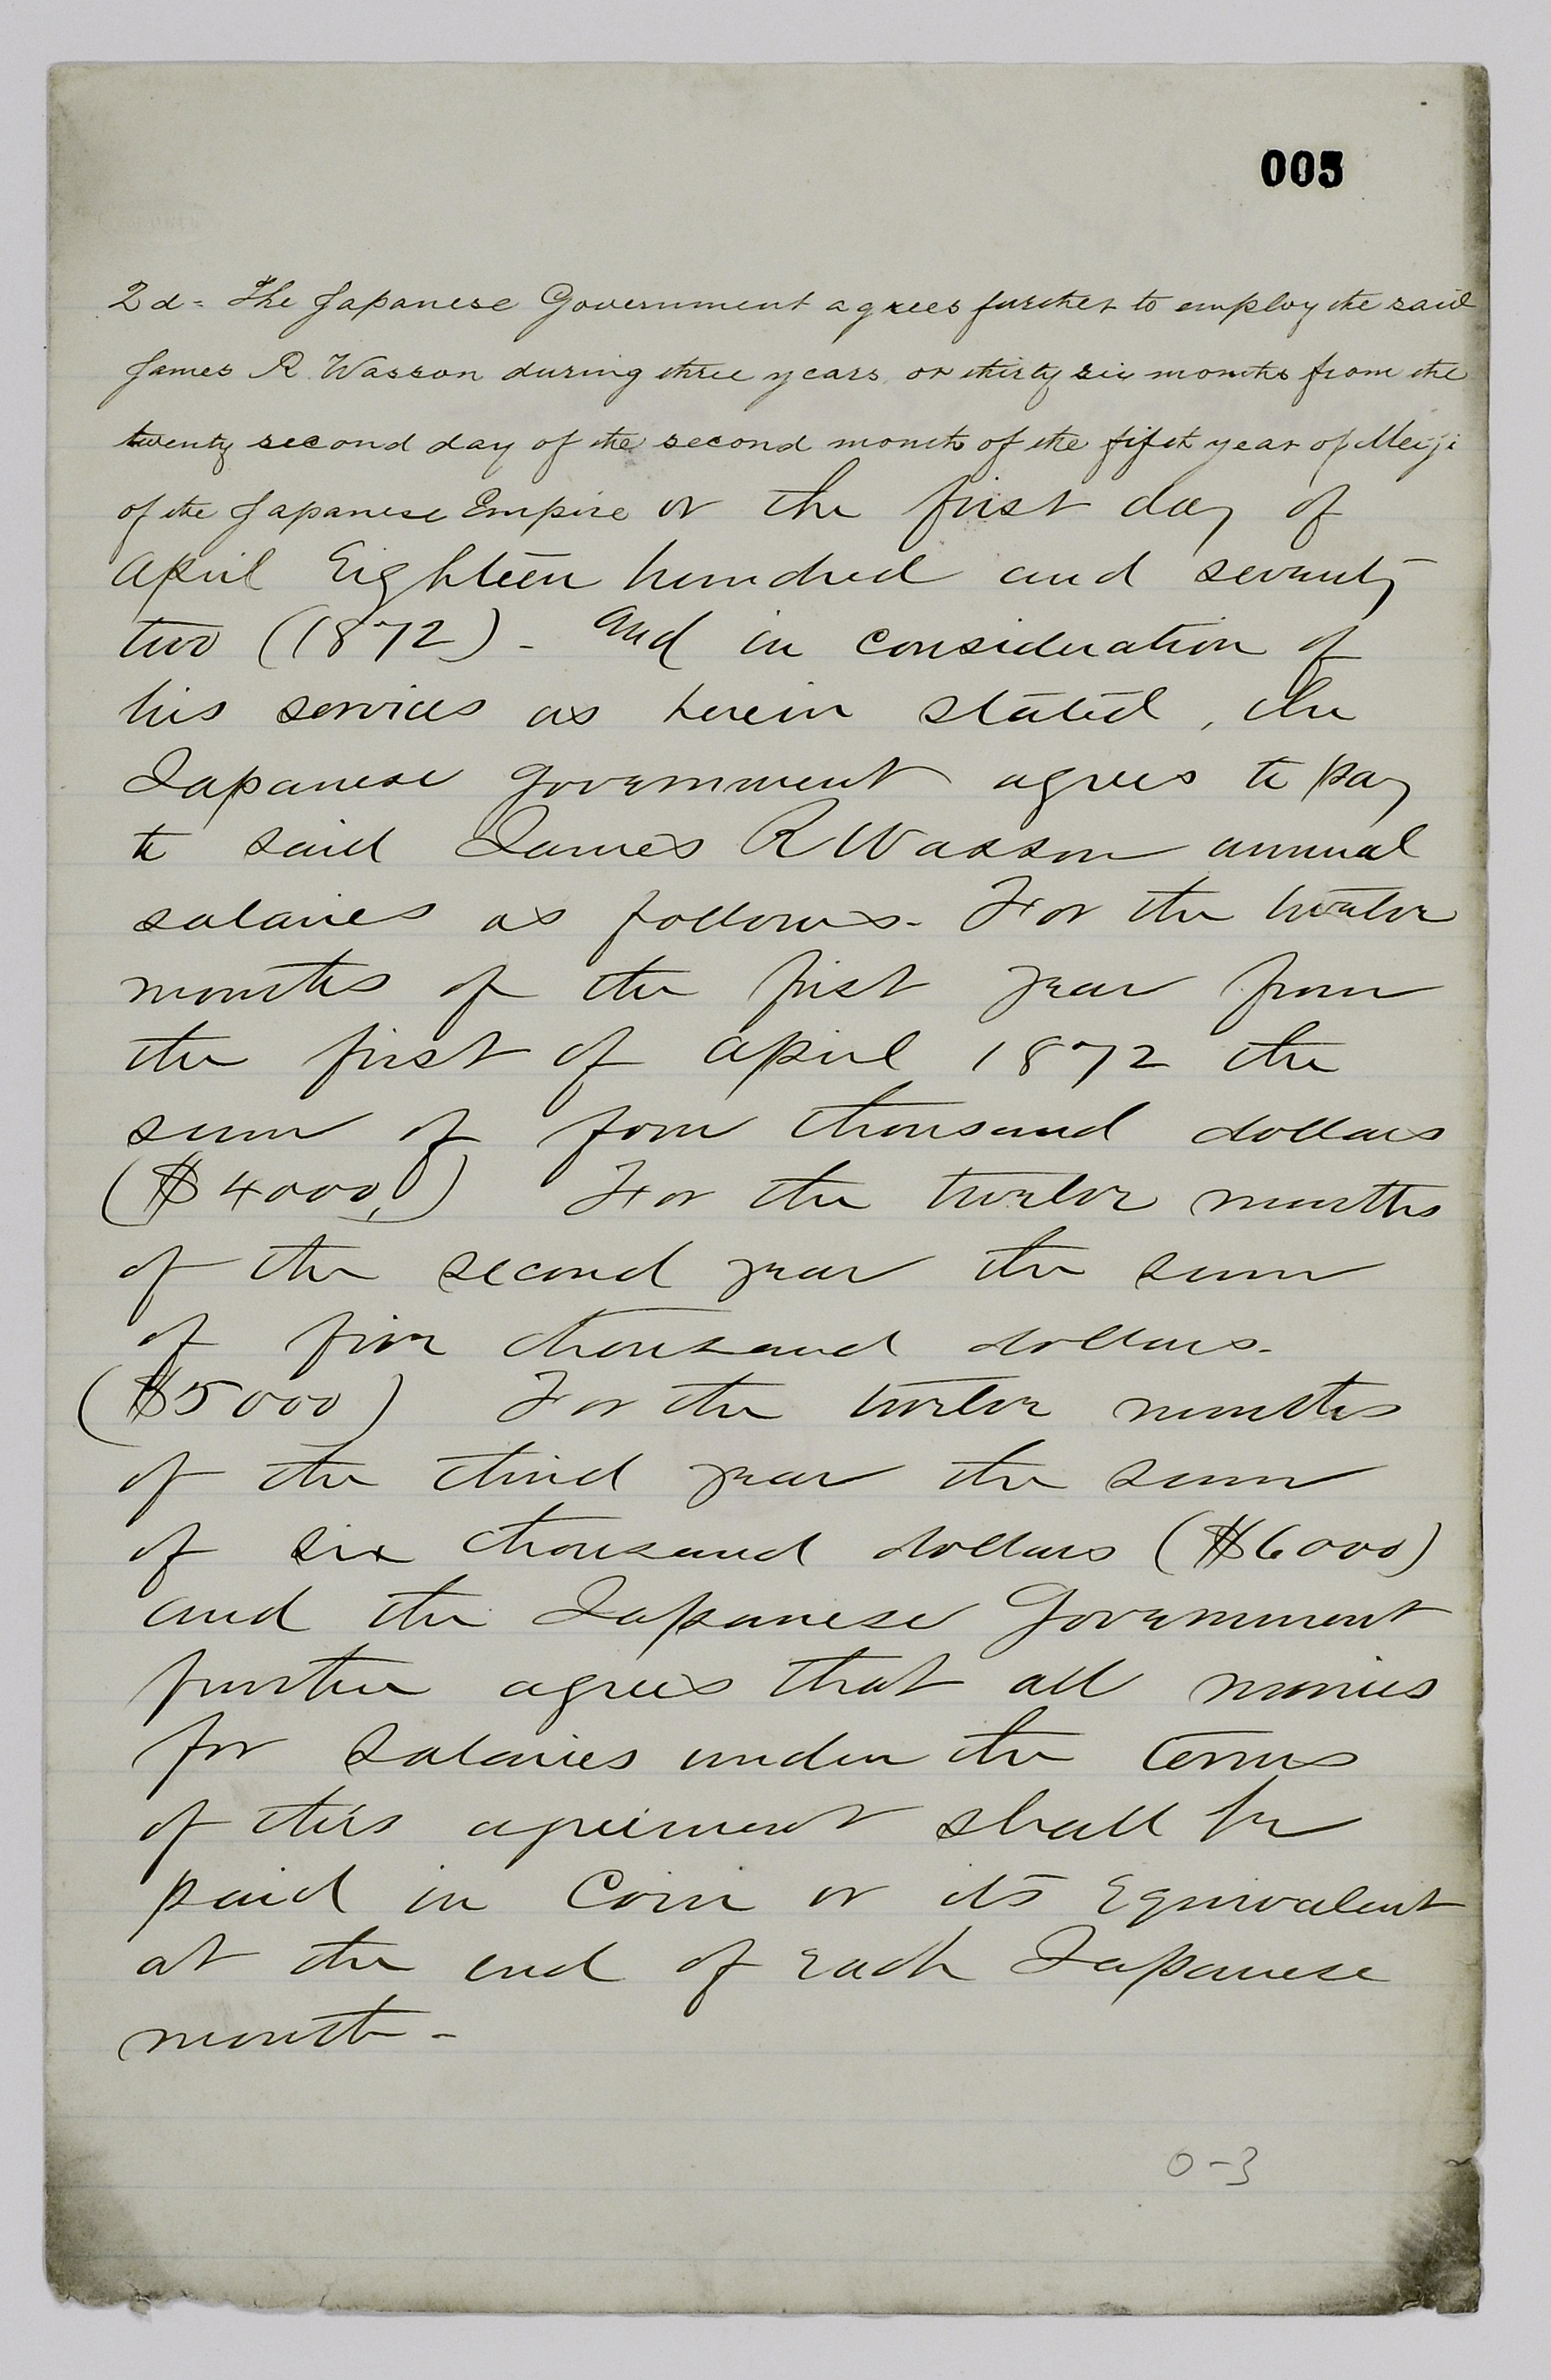 005
2d= The Japanese Government agrees further to employ the said
James R. Wasson during three years, or thirty six months from the
twenty second day of the second month of the fifth year of Meiji
of the Japanese Empire or the first day of
April Eighteen hundred and seventy
two (1872) - And in consideration of
his services as herein stated, the
Japanese Government agrees to pay
to said James R Wasson annual
salaries as follows - For the twelve
months of the first year from
the first of April 1872 the
sum of four thousand dollars
($4000,) For the twelve months
of the second year the sum
of five thousand dollars -
($5000) For the twelve months
of the third year the sum
of six thousand dollars ($6000)
and the Japanese Government
further agrees that all monies
for salaries under the terms
of this agreement shall be
paid in Coin or its Equivalent
at the end of each Japanese
month -
0-3